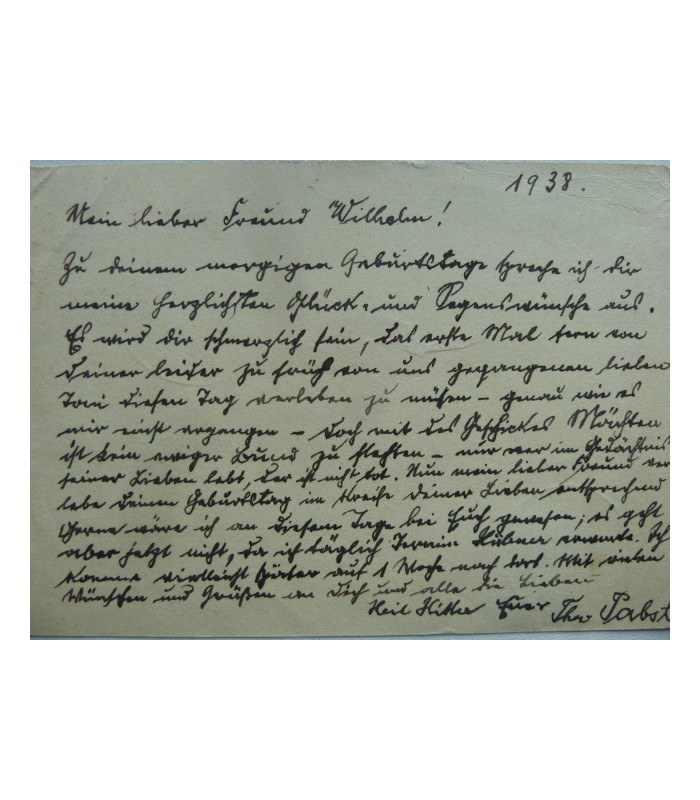 1938.
Mein lieber Freund Wilhelm!
Zu deinem morgigen Geburtstage spreche ich dir
meine herzlichsten Glück- und Segenswünsche aus.
Es wird dir schmerzlich sein, das erste Mal fern von
deiner leider zu früh von uns gegangenen lieben
Toni diesen Tag verleben zu müssen – genau wie es
mir einst ergangen – doch mit des Geschickes Mächten
ist kein ewiger Bund zu flechten – nur wer im Gedächtnis
seiner Lieben lebt, der ist nicht tot. Nun mein lieber Freund ver
lebe deinen Geburtstag im Kreise deiner Lieben entsprechend
Gerne wäre ich an diesem Tage bei Euch gewesen; es geht
aber jetzt nicht, da ich täglich Termin erwarte. Ich
komme vielleicht später auf 1 Woche nach dort. Mit vielen
Wünschen und Grüßen an Dich und alle die Lieben
Heil Hitler Euer Theo Pabst